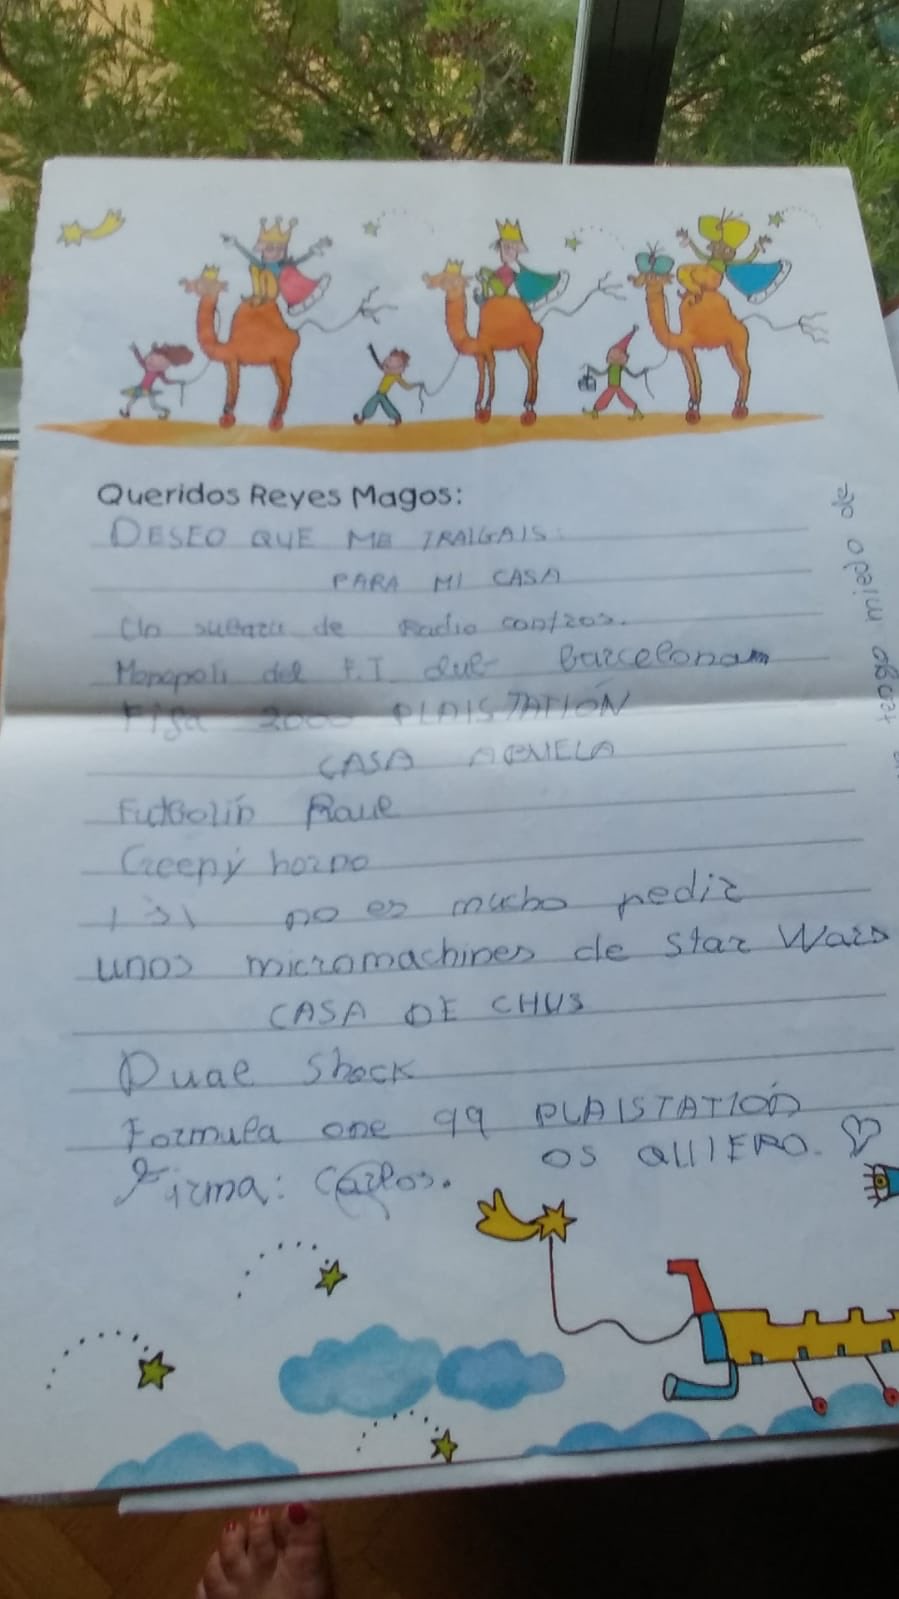 Queridos Reyes Magos:
DESEO QUE ME TRAIGAIS:
PARA MI CASA
Un subaru de Radio contros.
Monopoli del F.T. Barcelonam
Fifa 2000 PLAISTATIÓN
CASA ABUELA
Futbolín
Creepy horno
no es mucho pedir
unos micromachines de Star Wars
CASA DE CHUS
Dual Shock
Formula one 99 PLAISTATIÓN
Firma: Carlos. OS QUIERO.
tengo miedo de